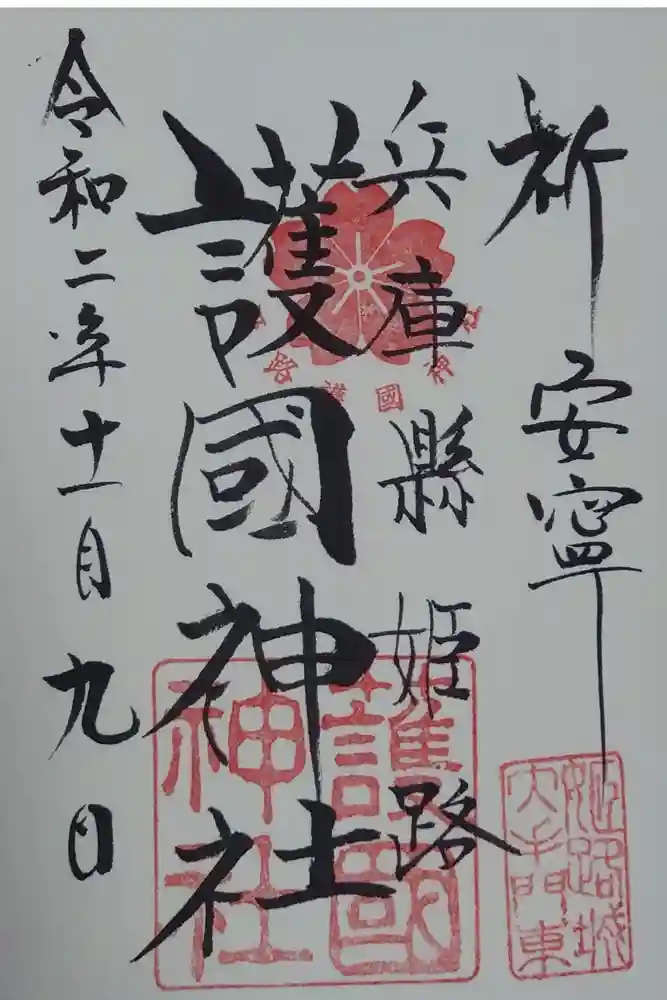 祈安寧
兵庫縣姫路
護國神社
令和二年十一月九日
護國神社
姫路城
大手門東